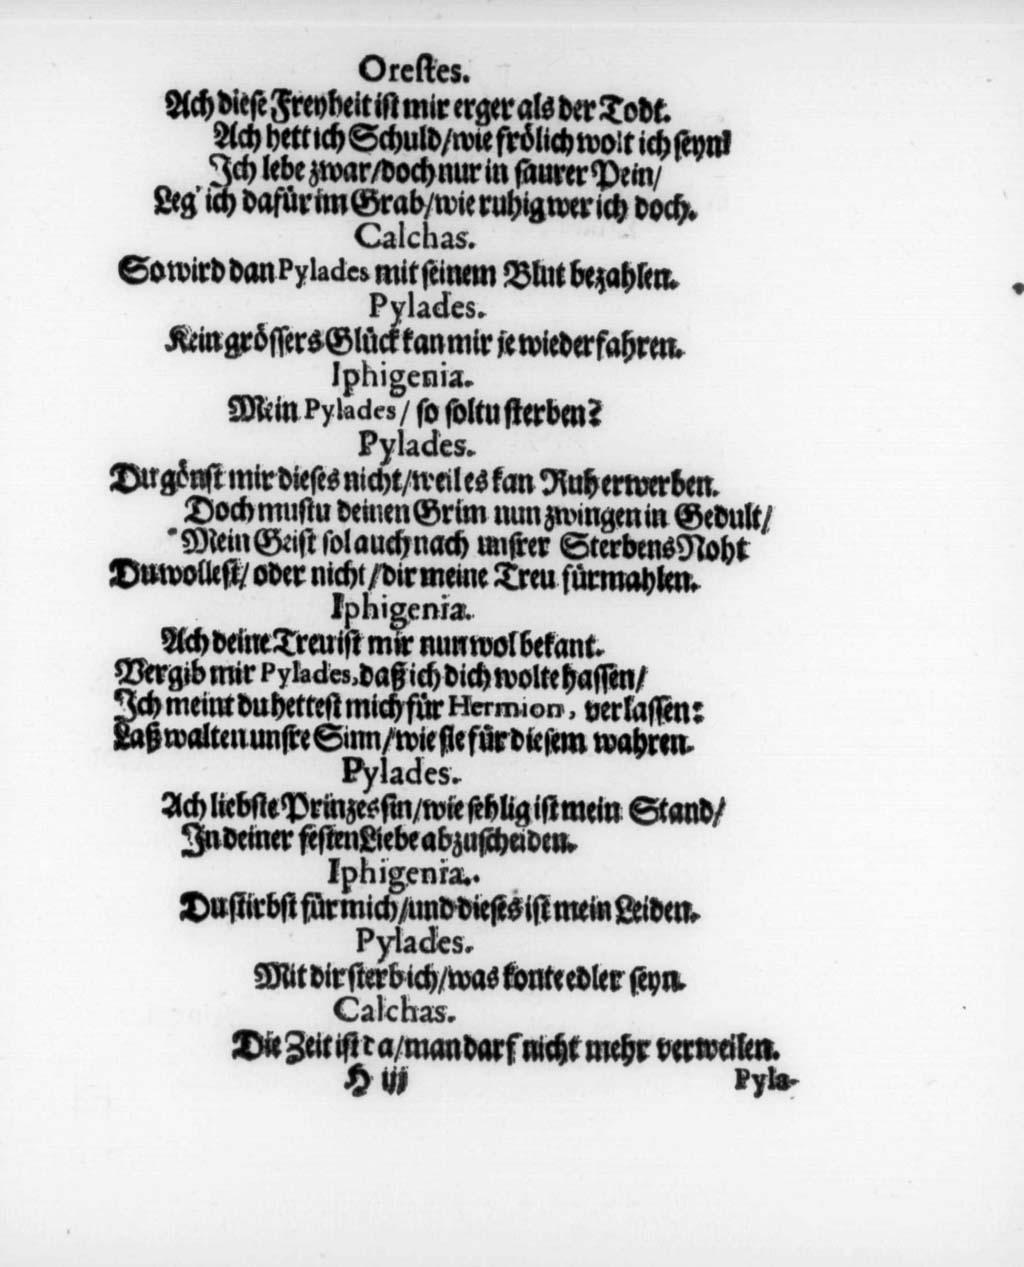 Orestes.
Ach diese Freyheit ist mir erger als der Todt.
Ach hett ich Schuld/ wie frölich wolt ich seyn!
Ich lebe zwar/ doch nur in saurer Pein/
Leg' ich dafür im Grab/ wie ruhig wer ich doch.
Calchas.
So wird dan Pylades mit seinem Blut bezahlen.
Pylades.
Kein grössers Glück kan mir je wiederfahren.
Iphigenia.
Mein Pylades/ so soltu sterben?
Pylades.
Du gönst mir dieses nicht/ weil es kan Ruh erwerben.
Doch mustu deinen Grim nun zwingen in Gedult/
Mein Geist sol auch nach unsrer Sterbens Noht
Du wollest/ oder nicht/ dir meine Treu fürmahlen.
Iphigenia.
Ach deine Treu ist mir nun wol bekant.
Vergib mir Pylades, daß ich dich wolte hassen/
Ich meint du hettest mich für Hermion, verlassen:
Laß walten unsre Sinn/ wie sie für diesem wahren.
Pylades.
Ach liebste Prinzessin/ wie sehlig ist mein Stand/
In deiner festen Liebe abzuscheiden.
Iphigenia.
Du stirbst für mich/ und dieses ist mein Leiden.
Pylades.
Mit dir sterb ich/ was konte edler seyn.
Calchas.
Die Zeit ist da/ man darf nicht mehr verweilen.
H iij Pyla-